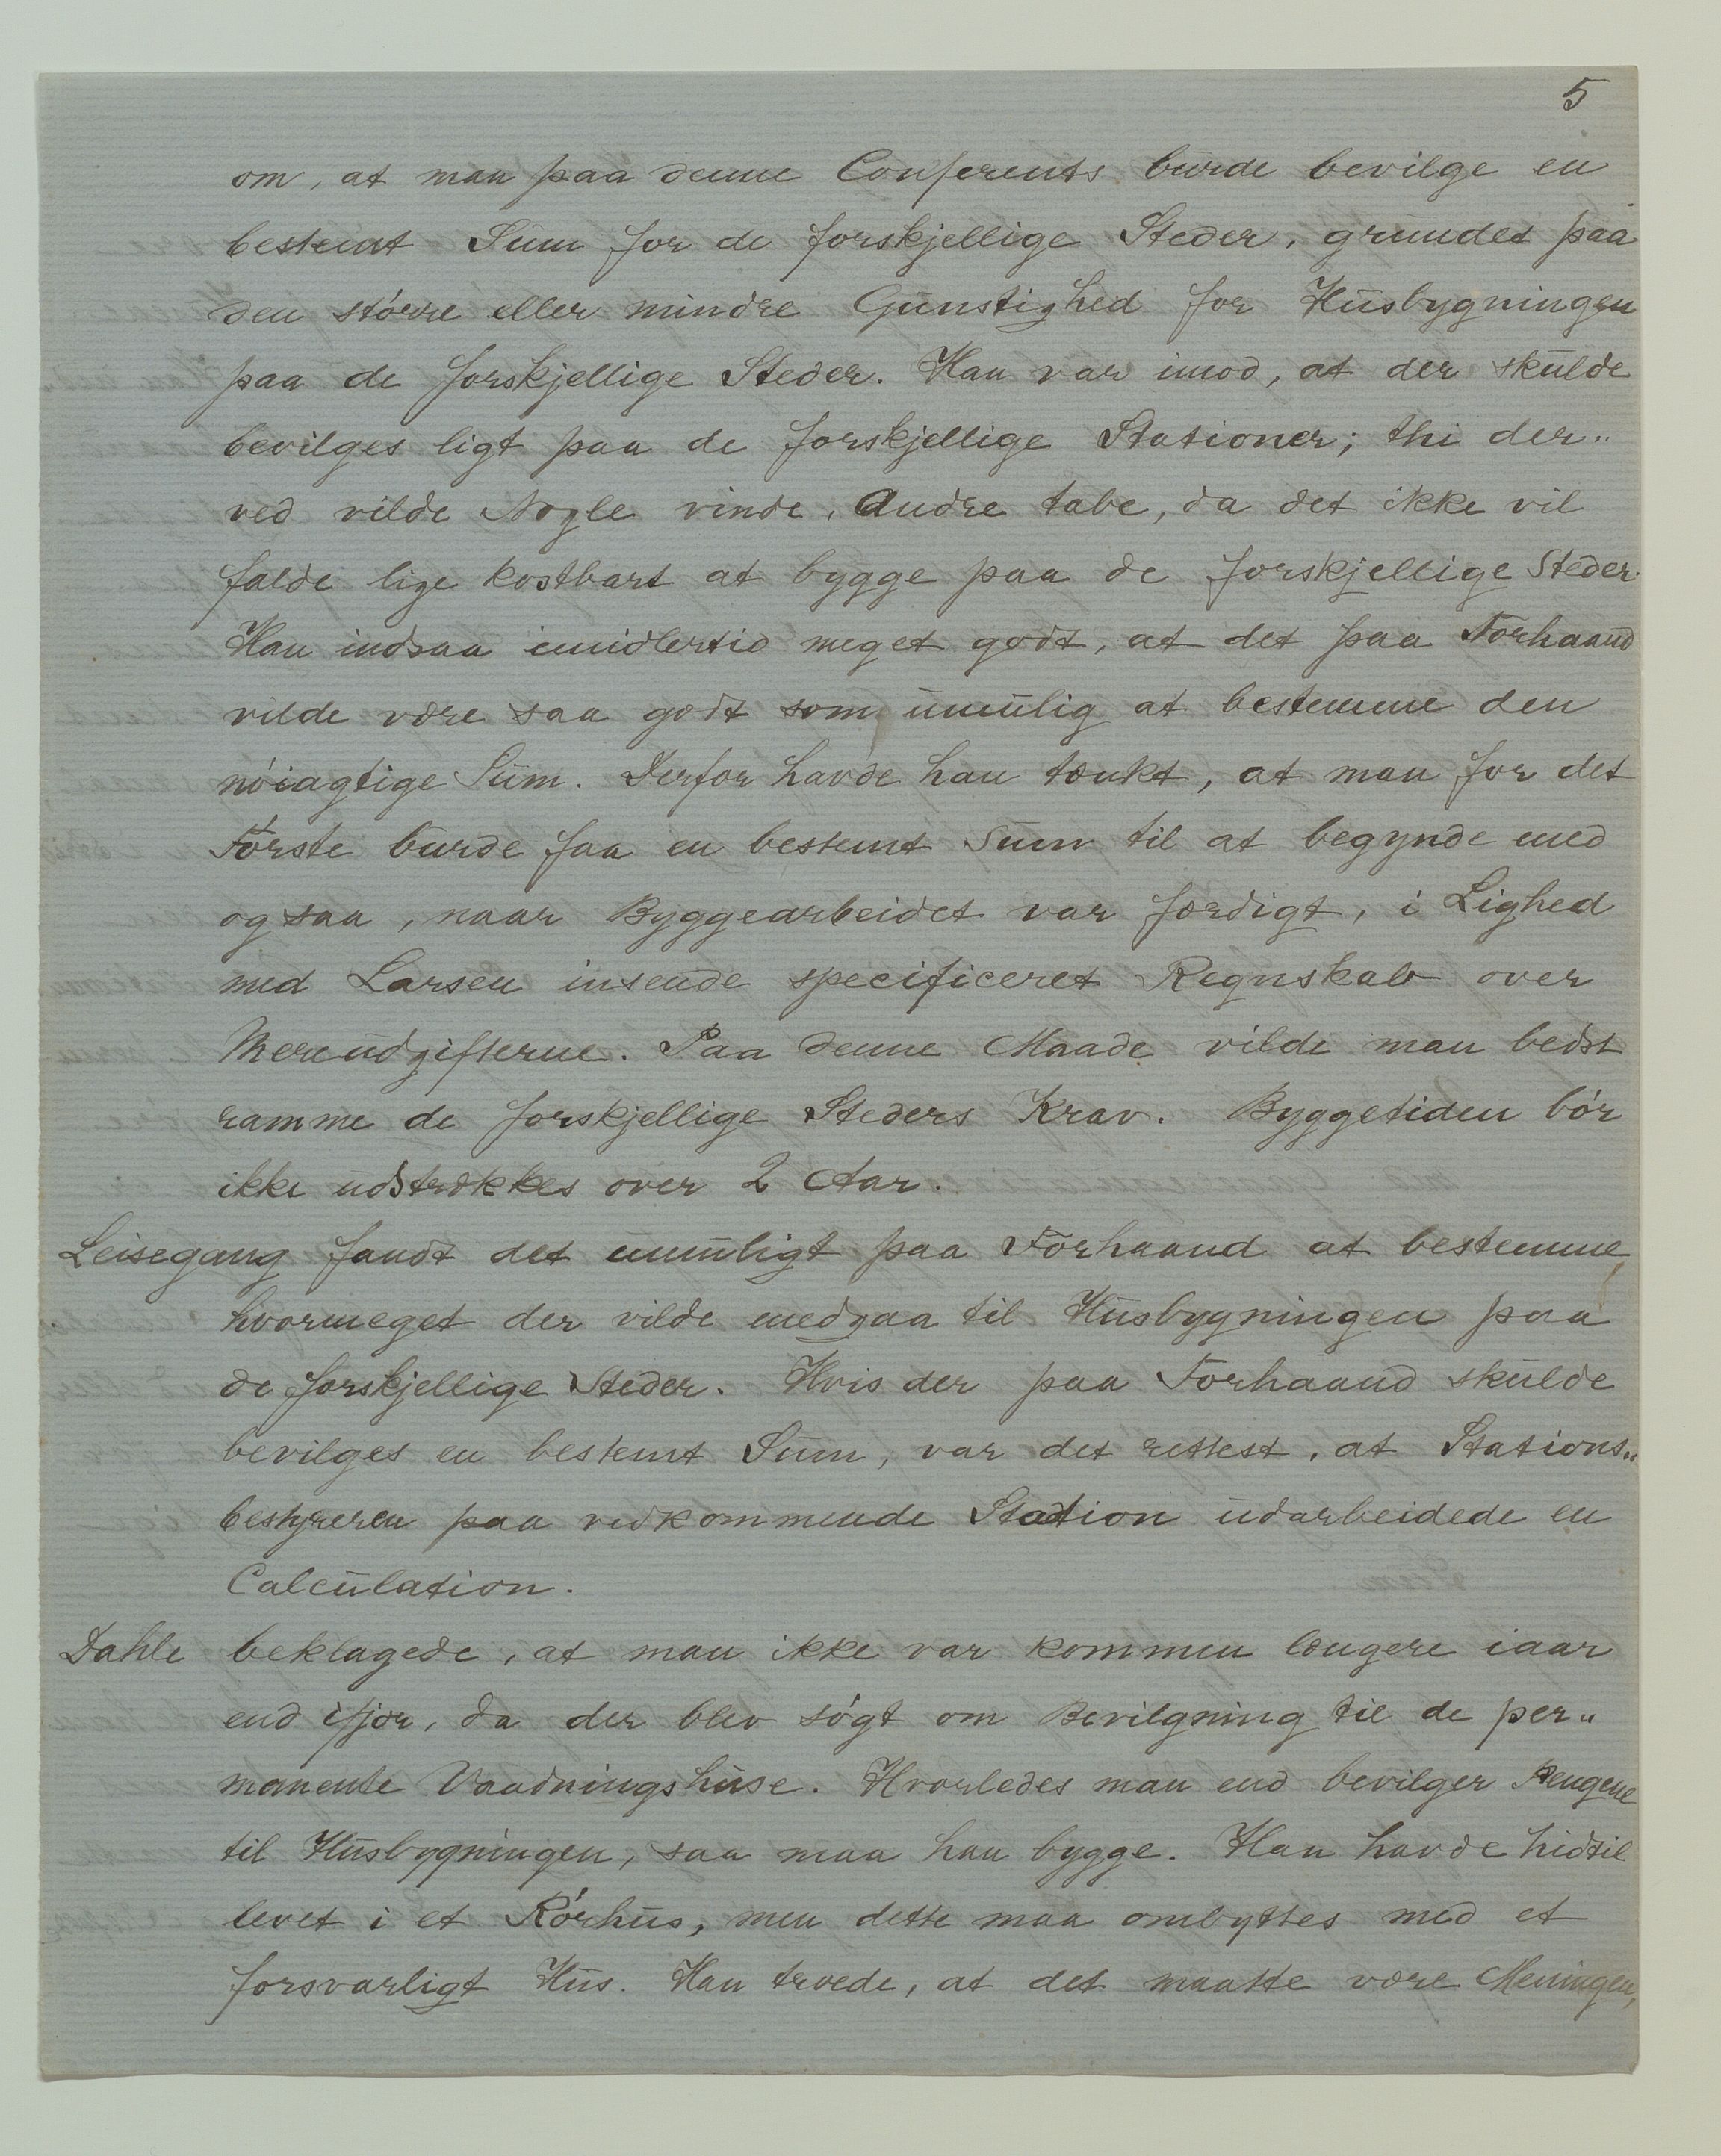 5
om, at man paa denne Conferents burde bevilge en
bestemt Sum for de forskjellige Steder, grundet paa
den större eller mindre Gunstighed for Husbygningen
paa de forskjellige Steder. Han var imod, at der skulde
bevilges ligt paa de forskjellige Stationer; thi der„
ved vilde Nogle vinde, Andre tabe, da det ikke vil
falde lige kostbart at bygge paa de forskjellige Steder.
Han indsaa imidlertid meget godt, at det paa Forhaand
vilde være saa godt som umulig at bestemme den
nöiagtige Sum. Derfor havde han tænkt, at man for det
Förste burde faa en bestemt Sum til at begynde med
og saa, naar Byggearbeidet var færdigt, i Lighed
med Larsen insende specificeret Regnskab over
Merudgifterne. Paa denne Maade vilde man bedst
ramme de forskjellige Steders Krav. Byggetiden bör
ikke udstrækkes over 2 Aar.
Leisegang fandt det umuligt paa Forhaand at bestemme,
hvormeget der vilde medgaa til Husbygningen paa
de forskjellige Steder. Hvis der paa Forhaand skulde
bevilges en bestemt Sum, var det rettest, at Stations„
bestyreren paa vedkommende Station udarbeidede en
Calculation.
Dahle beklagede, at man ikke var kommen længere iaar
end ifjor, da der blev sögt om Bevilgning til de per„
manente Vaadningshuse. Hvorledes man end bevilger Pengene
til Husbygningen, saa maa han bygge. Han havde hidtil
levet i et Rörhus, men dette maa ombyttes med et
forsvarligt Hus. Han troede, at det maatte være Meningen,